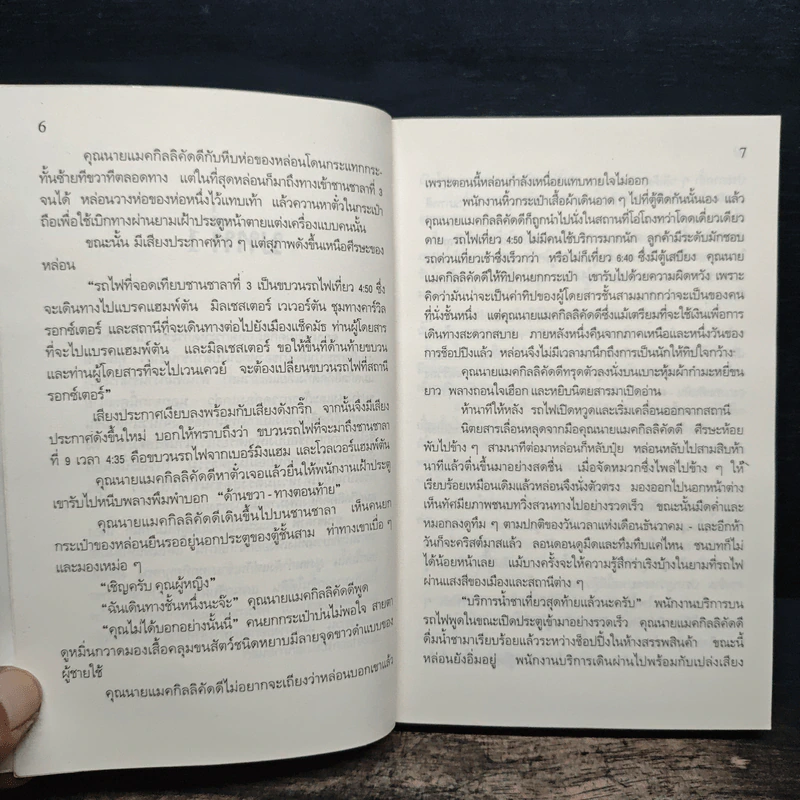 6
คุณนายแมคกิลลิคัดดีกับหีบห่อของหล่อนโดนกระแทกกระ-
ทั้นซ้ายทีขวาทีตลอดทาง แต่ในที่สุดหล่อนก็มาถึงทางเข้าชานชาลาที่ 3
จนได้ หล่อนวางห่อของห่อหนึ่งไว้แทบเท้า แล้วควานหาตั๋วในกระเป๋า
ถือเพื่อใช้เบิกทางผ่านยามเฝ้าประตูหน้าตายแต่งเครื่องแบบคนนั้น
ขณะนั้น มีเสียงประกาศห้าว ๆ แต่สุภาพดังขึ้นเหนือศีรษะของ
หล่อน
“รถไฟที่จอดเทียบชานชาลาที่ 3 เป็นขบวนรถไฟเที่ยว 4:50 ซึ่ง
จะเดินทางไปแบรคแฮมพ์ตัน มิลเชสเตอร์ เวเวอร์ตัน ชุมทางคาร์วิล
รอกซ์เตอร์ และสถานีที่จะเดินทางต่อไปยังเมืองแช็ดมัธ ท่านผู้โดยสาร
ที่จะไปแบรคแฮมพ์ตัน และมิลเชสเตอร์ ขอให้ขึ้นที่ด้านท้ายขบวน
และท่านผู้โดยสารที่จะไปเวนเควย์ จะต้องเปลี่ยนขบวนรถไฟที่สถานี
รอกซ์เตอร์”
เสียงประกาศเงียบลงพร้อมกับเสียงดังกริ๊ก จากนั้นจึงมีเสียง
ประกาศดังขึ้นใหม่ บอกให้ทราบถึงว่า ขบวนรถไฟที่จะมาถึงชานชาลา
ที่ 9 เวลา 4:35 คือขบวนรถไฟจากเบอร์มิงแฮม และโวลเวอร์แฮมพ์ตัน
คุณนายแมคกิลลิคัดดีหาตั๋วเจอแล้วยื่นให้พนักงานเฝ้าประตู
เขารับไปหนีบพลางพึมพำบอก “ด้านขวา - ทางตอนท้าย”
คุณนายแมคกิลลิคัดดีเดินขึ้นไปบนชานชาลา เห็นคนยก
กระเป๋าของหล่อนยืนรออยู่นอกประตูของตู้ชั้นสาม ท่าทางเขาเบื่อ ๆ
และมองเหม่อ ๆ
“เชิญครับ คุณผู้หญิง”
“ฉันเดินทางชั้นหนึ่งนะจ๊ะ” คุณนายแมคกิลลิคัดดีพูด
“คุณไม่ได้บอกอย่างนั้นนี่” คนยกกระเป๋าบ่นไม่พอใจ สายตา
ดูหมิ่นกวาดมองเสื้อคลุมขนสัตว์ชนิดหยาบมีลายจุดขาวดำแบบของ
ผู้ชายใช้
คุณนายแมคกิลลิคัดดีไม่อยากจะเถียงว่าหล่อนบอกเขาแล้ว
7
เพราะตอนนี้หล่อนกำลังเหนื่อยแทบหายใจไม่ออก
พนักงานหิ้วกระเป๋าเสื้อผ้าเดินอาด ๆ ไปที่ตู้ติดกันนั้นเอง แล้ว
คุณนายแมคกิลลิคัดดีก็ถูกนำไปนั่งในสถานที่โอ่โถงทว่าโดดเดี่ยวเดียว
ดาย รถไฟเที่ยว 4:50 ไม่มีคนใช้บริการมากนัก ลูกค้ามีระดับมักชอบ
รถด่วนเที่ยวเช้าซึ่งเร็วกว่า หรือไม่ก็เที่ยว 6:40 ซึ่งมีตู้เสบียง คุณนาย
แมคกิลลิคัดดีให้ทิปคนยกกระเป๋า เขารับไปด้วยความผิดหวัง เพราะ
คิดว่ามันน่าจะเป็นค่าทิปของผู้โดยสารชั้นสามมากกว่าจะเป็นของคน
ที่นั่งชั้นหนึ่ง แต่คุณนายแมคกิลลิคัดดีซึ่งแม้เตรียมที่จะใช้เงินเพื่อการ
เดินทางสะดวกสบาย ภายหลังหนึ่งคืนจากภาคเหนือและหนึ่งวันของ
การช็อปปิงแล้ว หล่อนจึงไม่มีเวลามานึกถึงการเป็นนักให้ทิปใจกว้าง
คุณนายแมคกิลลิคัดดีทรุดตัวลงนั่งบนเบาะหุ้มผ้ากำมะหยี่ขน
ยาว พลางถอนใจเฮือก และหยิบนิตยสารมาเปิดอ่าน
ห้านาทีให้หลัง รถไฟเปิดหวูดและเริ่มเคลื่อนออกจากสถานี
นิตยสารเลื่อนหลุดจากมือคุณนายแมคกิลลิคัดดี ศีรษะห้อย
พับไปข้าง ๆ สามนาทีต่อมาหล่อนก็หลับปุ๋ย หล่อนหลับไปสามสิบห้า
นาทีแล้วตื่นขึ้นมาอย่างสดชื่น เมื่อจัดหมวกซึ่งไพล่ไปข้าง ๆ ให้
เรียบร้อยเหมือนเดิมแล้วหล่อนจึงนั่งตัวตรง มองออกไปนอกหน้าต่าง
เห็นทัศมียภาพชนบทวิ่งสวนทางไปอย่างรวดเร็ว ขณะนั้นมืดค่ำและ
หมอกลงดูทึม ๆ ตามปกติของวันเวลาแห่งเดือนธันวาคม - และอีกห้า
วันก็จะคริสต์มาสแล้ว ลอนดอนดูมืดและทึมทึบแค่ไหน ชนบทก็ไม่
ได้น้อยหน้าเลย แม้บางครั้งจะให้ความรู้สึกร่าเริงบ้างในยามที่รถไฟ
ผ่านแสงสีของเมืองและสถานีต่าง ๆ
“บริการน้ำชาเที่ยวสุดท้ายแล้วนะครับ” พนักงานบริการบน
รถไฟพูดในขณะเปิดประตูเข้ามาอย่างรวดเร็ว คุณนายแมคกิลลิคัดดี
ดื่มน้ำชามาเรียบร้อยแล้วระหว่างช็อปปิ้งในห้างสรรพสินค้า ขณะนี้
หล่อนยังอิ่มอยู่ พนักงานบริการเดินผ่านไปพร้อมกับเปล่งเสียง